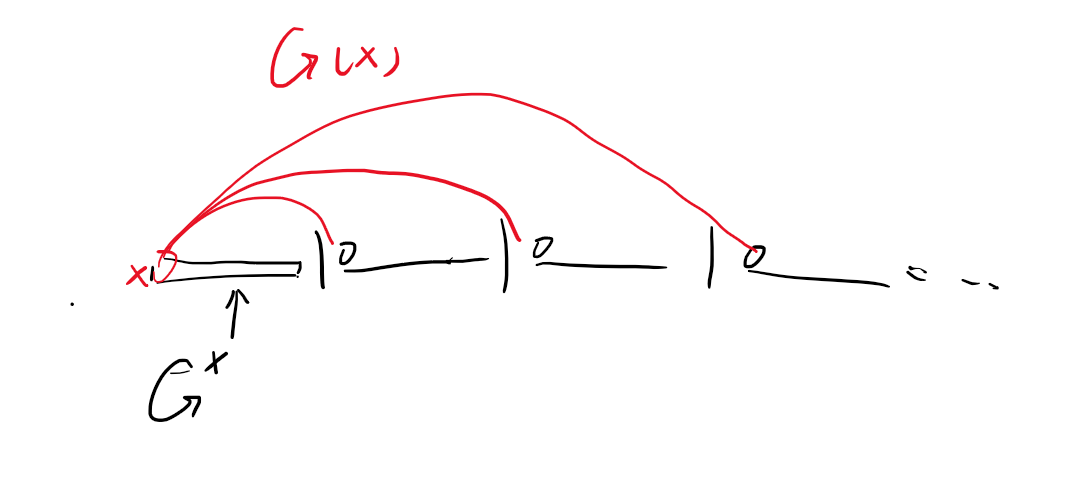 G(x)
x | 0 | 0 | 0 = ...
G^x